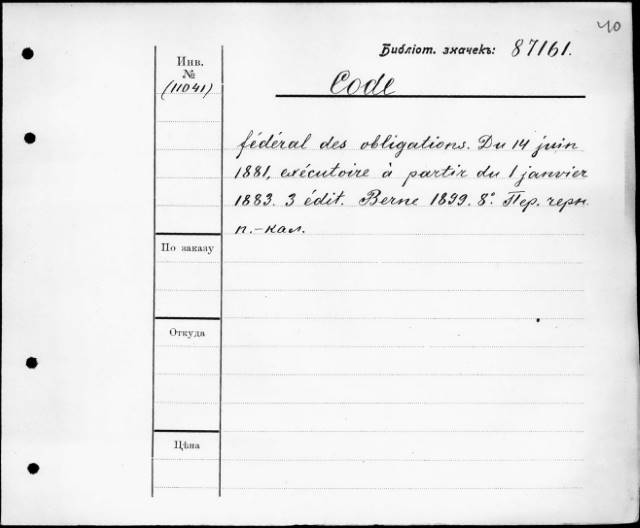 40
Библіот. значекъ: 87161.
Инв.
№
(11041)
Code
fédéral des obligations. Du 14 juin
1881, exécutoire à partir du 1 janvier
1883. 3 édit. Berne 1899. 8°. Пер. черн.
п.-кал.
По заказу
Откуда
Цѣна